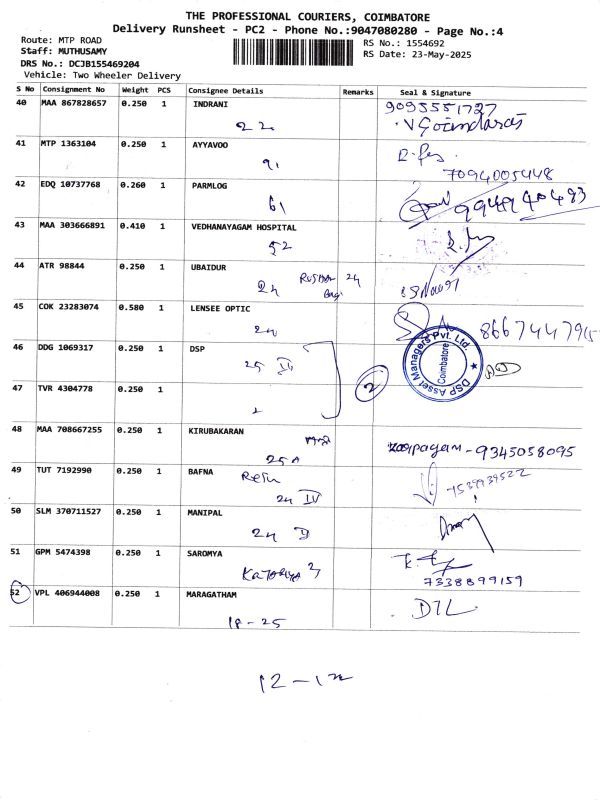 THE PROFESSIONAL COURIERS, COIMBATORE
Delivery Runsheet - PC2 - Phone No.:9047080280 - Page No.:4
Route: MTP ROAD
Staff: MUTHUSAMY
DRS No.: DCJB155469204
Vehicle: Two Wheeler Delivery
RS No.: 1554692
RS Date: 23-May-2025
S No Consignment No Weight PCS Consignee Details Remarks Seal & Signature
40 MAA 867828657 0.250 1 INDRANI 9095551727
22
41 MTP 1363104 0.250 1 AYYAVOO
91 7094005448
42 EDQ 10737768 0.260 1 PARMLOG
61
43 MAA 303666891 0.410 1 VEDHANAYAGAM HOSPITAL
52
44 ATR 98844 0.250 1 UBAIDUR
24 24
45 COK 23283074 0.580 1 LENSEE OPTIC
24 8667447915
46 DDG 1069317 0.250 1 DSP
25 IV 2
DSP Asset Managers Pvt. Ltd.
Coimbatore
47 TVR 4304778 0.250 1
48 MAA 708667255 0.250 1 KIRUBAKARAN
25 A 9345058095
49 TUT 7192990 0.250 1 BAFNA
24 IV
50 SLM 370711527 0.250 1 MANIPAL
24
51 GPM 5474398 0.250 1 SAROMYA
KATARIYA 7338899159
52 VPL 406944008 0.250 1 MARAGATHAM DTL
18-25